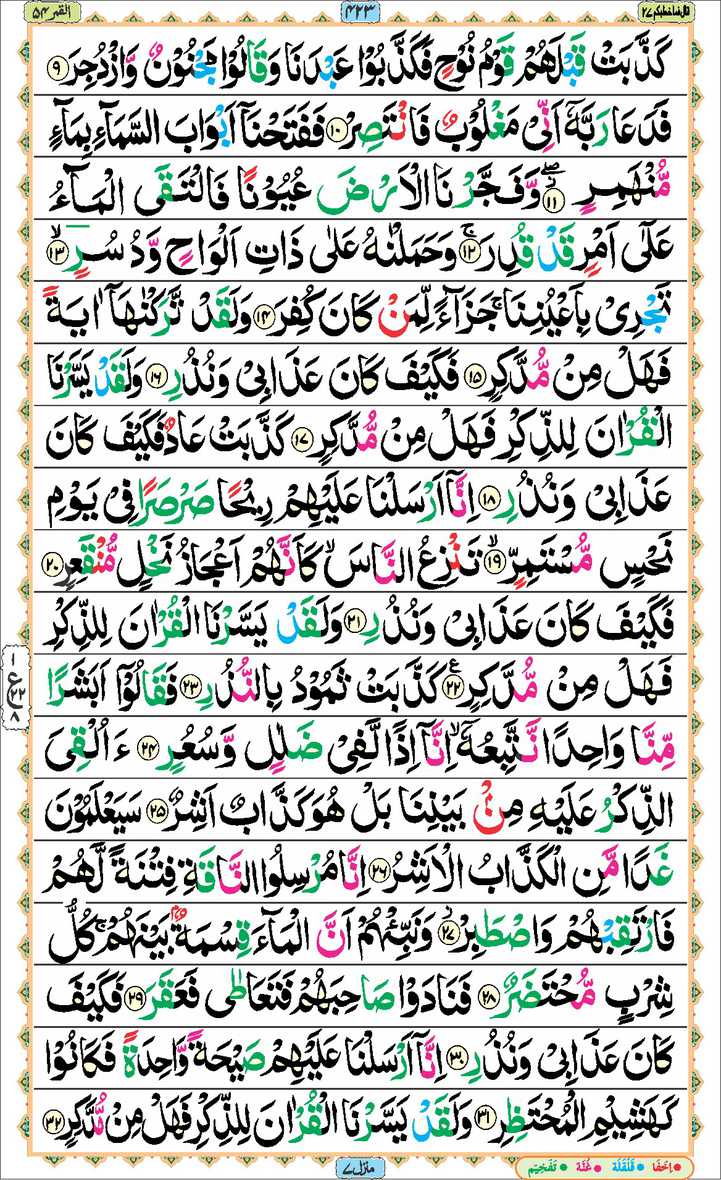 القمر ٥٤
٤٢٣
قال فما خطبكم ٢٧
كَذَّبَتْ قَبْلَهُمْ قَوْمُ نُوْحٍ فَكَذَّبُوْا عَبْدَنَا وَقَالُوْا مَجْنُوْنٌ وَّازْدُجِرَ ۹
فَدَعَا رَبَّهٗۤ اَنِّیْ مَغْلُوْبٌ فَانْتَصِرْ ۱۰ فَفَتَحْنَاۤ اَبْوَابَ السَّمَآءِ بِمَآءٍ
مُّنْهَمِرٍ ۱۱ وَّفَجَّرْنَا الْاَرْضَ عُیُوْنًا فَالْتَقَی الْمَآءُ
عَلٰۤی اَمْرٍ قَدْ قُدِرَ ۱۲ وَحَمَلْنٰهُ عَلٰی ذَاتِ اَلْوَاحٍ وَّدُسُرٍ ۱۳
تَجْرِیْ بِاَعْیُنِنَا جَزَآءً لِّمَنْ كَانَ كُفِرَ ۱۴ وَلَقَدْ تَّرَكْنٰهَاۤ اٰیَةً
فَهَلْ مِنْ مُّدَّكِرٍ ۱۵ فَكَیْفَ كَانَ عَذَابِیْ وَنُذُرِ ۱۶ وَلَقَدْ یَسَّرْنَا
الْقُرْاٰنَ لِلذِّكْرِ فَهَلْ مِنْ مُّدَّكِرٍ ۱۷ كَذَّبَتْ عَادٌ فَكَیْفَ كَانَ
عَذَابِیْ وَنُذُرِ ۱۸ اِنَّاۤ اَرْسَلْنَا عَلَیْهِمْ رِیْحًا صَرْصَرًا فِیْ یَوْمِ
نَحْسٍ مُّسْتَمِرٍّ ۱۹ تَنْزِعُ النَّاسَ كَاَنَّهُمْ اَعْجَازُ نَخْلٍ مُّنْقَعِرٍ ۲۰
فَكَیْفَ كَانَ عَذَابِیْ وَنُذُرِ ۲۱ وَلَقَدْ یَسَّرْنَا الْقُرْاٰنَ لِلذِّكْرِ
فَهَلْ مِنْ مُّدَّكِرٍ ۲۲ كَذَّبَتْ ثَمُوْدُ بِالنُّذُرِ ۲۳ فَقَالُوْۤا اَبَشَرًا
مِّنَّا وَاحِدًا نَّتَّبِعُهٗۤ اِنَّاۤ اِذًا لَّفِیْ ضَلٰلٍ وَّسُعُرٍ ۲۴ ءَاُلْقِیَ
الذِّكْرُ عَلَیْهِ مِنْۢ بَیْنِنَا بَلْ هُوَ كَذَّابٌ اَشِرٌ ۲۵ سَیَعْلَمُوْنَ
غَدًا مَّنِ الْكَذَّابُ الْاَشِرُ ۲۶ اِنَّا مُرْسِلُوا النَّاقَةِ فِتْنَةً لَّهُمْ
فَارْتَقِبْهُمْ وَاصْطَبِرْ ۲۷ وَنَبِّئْهُمْ اَنَّ الْمَآءَ قِسْمَةٌۢ بَیْنَهُمْ كُلُّ
شِرْبٍ مُّحْتَضَرٌ ۲۸ فَنَادَوْا صَاحِبَهُمْ فَتَعَاطٰی فَعَقَرَ ۲۹ فَكَیْفَ
كَانَ عَذَابِیْ وَنُذُرِ ۳۰ اِنَّاۤ اَرْسَلْنَا عَلَیْهِمْ صَیْحَةً وَّاحِدَةً فَكَانُوْا
كَهَشِیْمِ الْمُحْتَظِرِ ۳۱ وَلَقَدْ یَسَّرْنَا الْقُرْاٰنَ لِلذِّكْرِ فَهَلْ مِنْ مُّدَّكِرٍ ۳۲
۱
ع ۲۲
۸
منزل ۷
اِخفَا قَلقَلَة غُنَّة تَفخِیْم